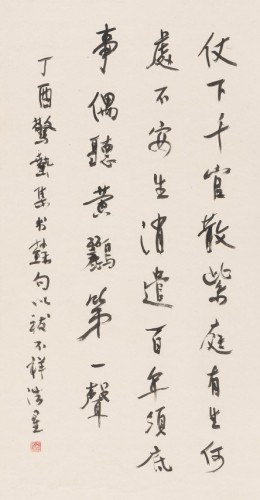 仗下千官散紫庭有生何
處不安生消遣百年須底
事偶聽黄鸝第一聲
丁酉驚蟄集書蘇句以祓不祥浩星